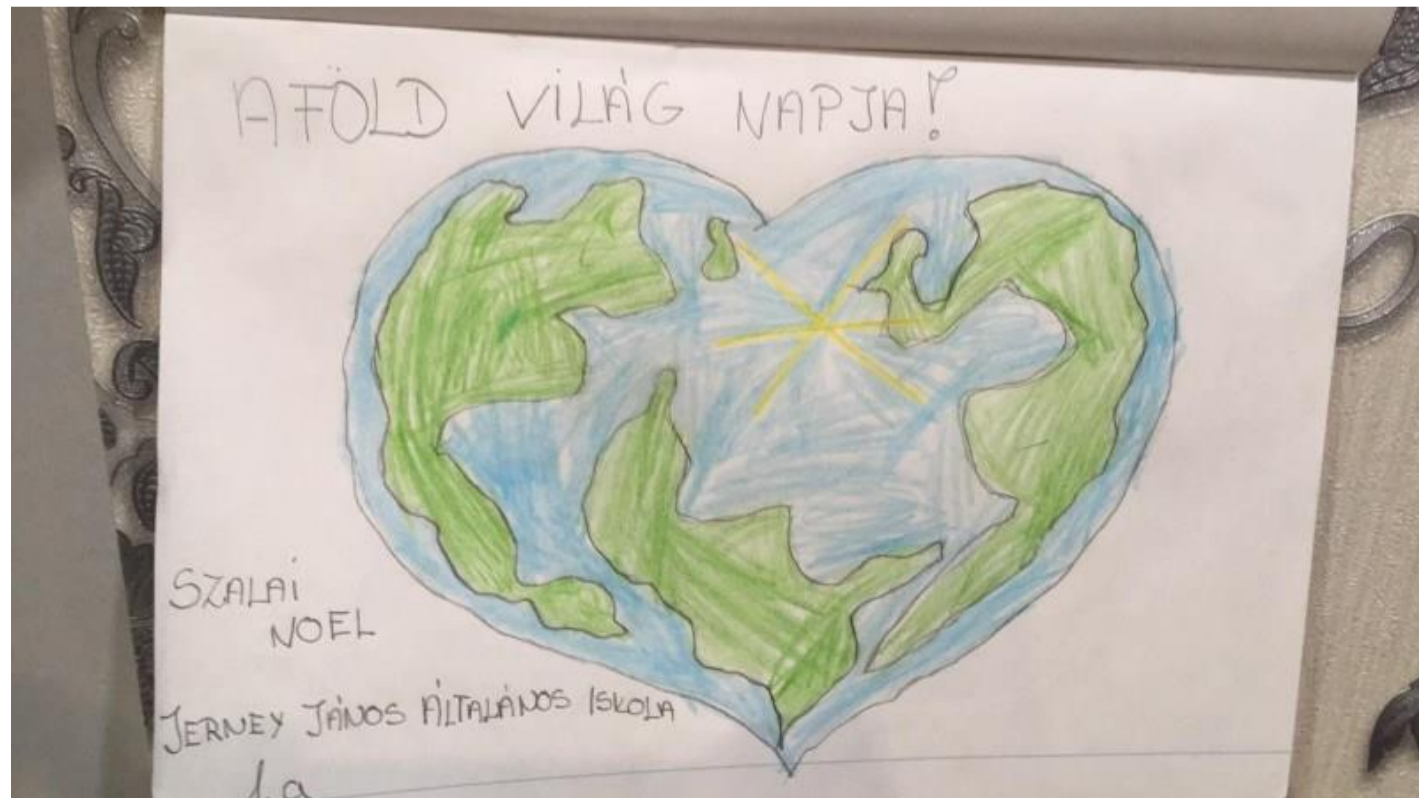 A FÖLD VILÁG NAPJA!
SZALAI
NOEL
JERNEY JÁNOS ÁLTALÁNOS ISKOLA
1.a